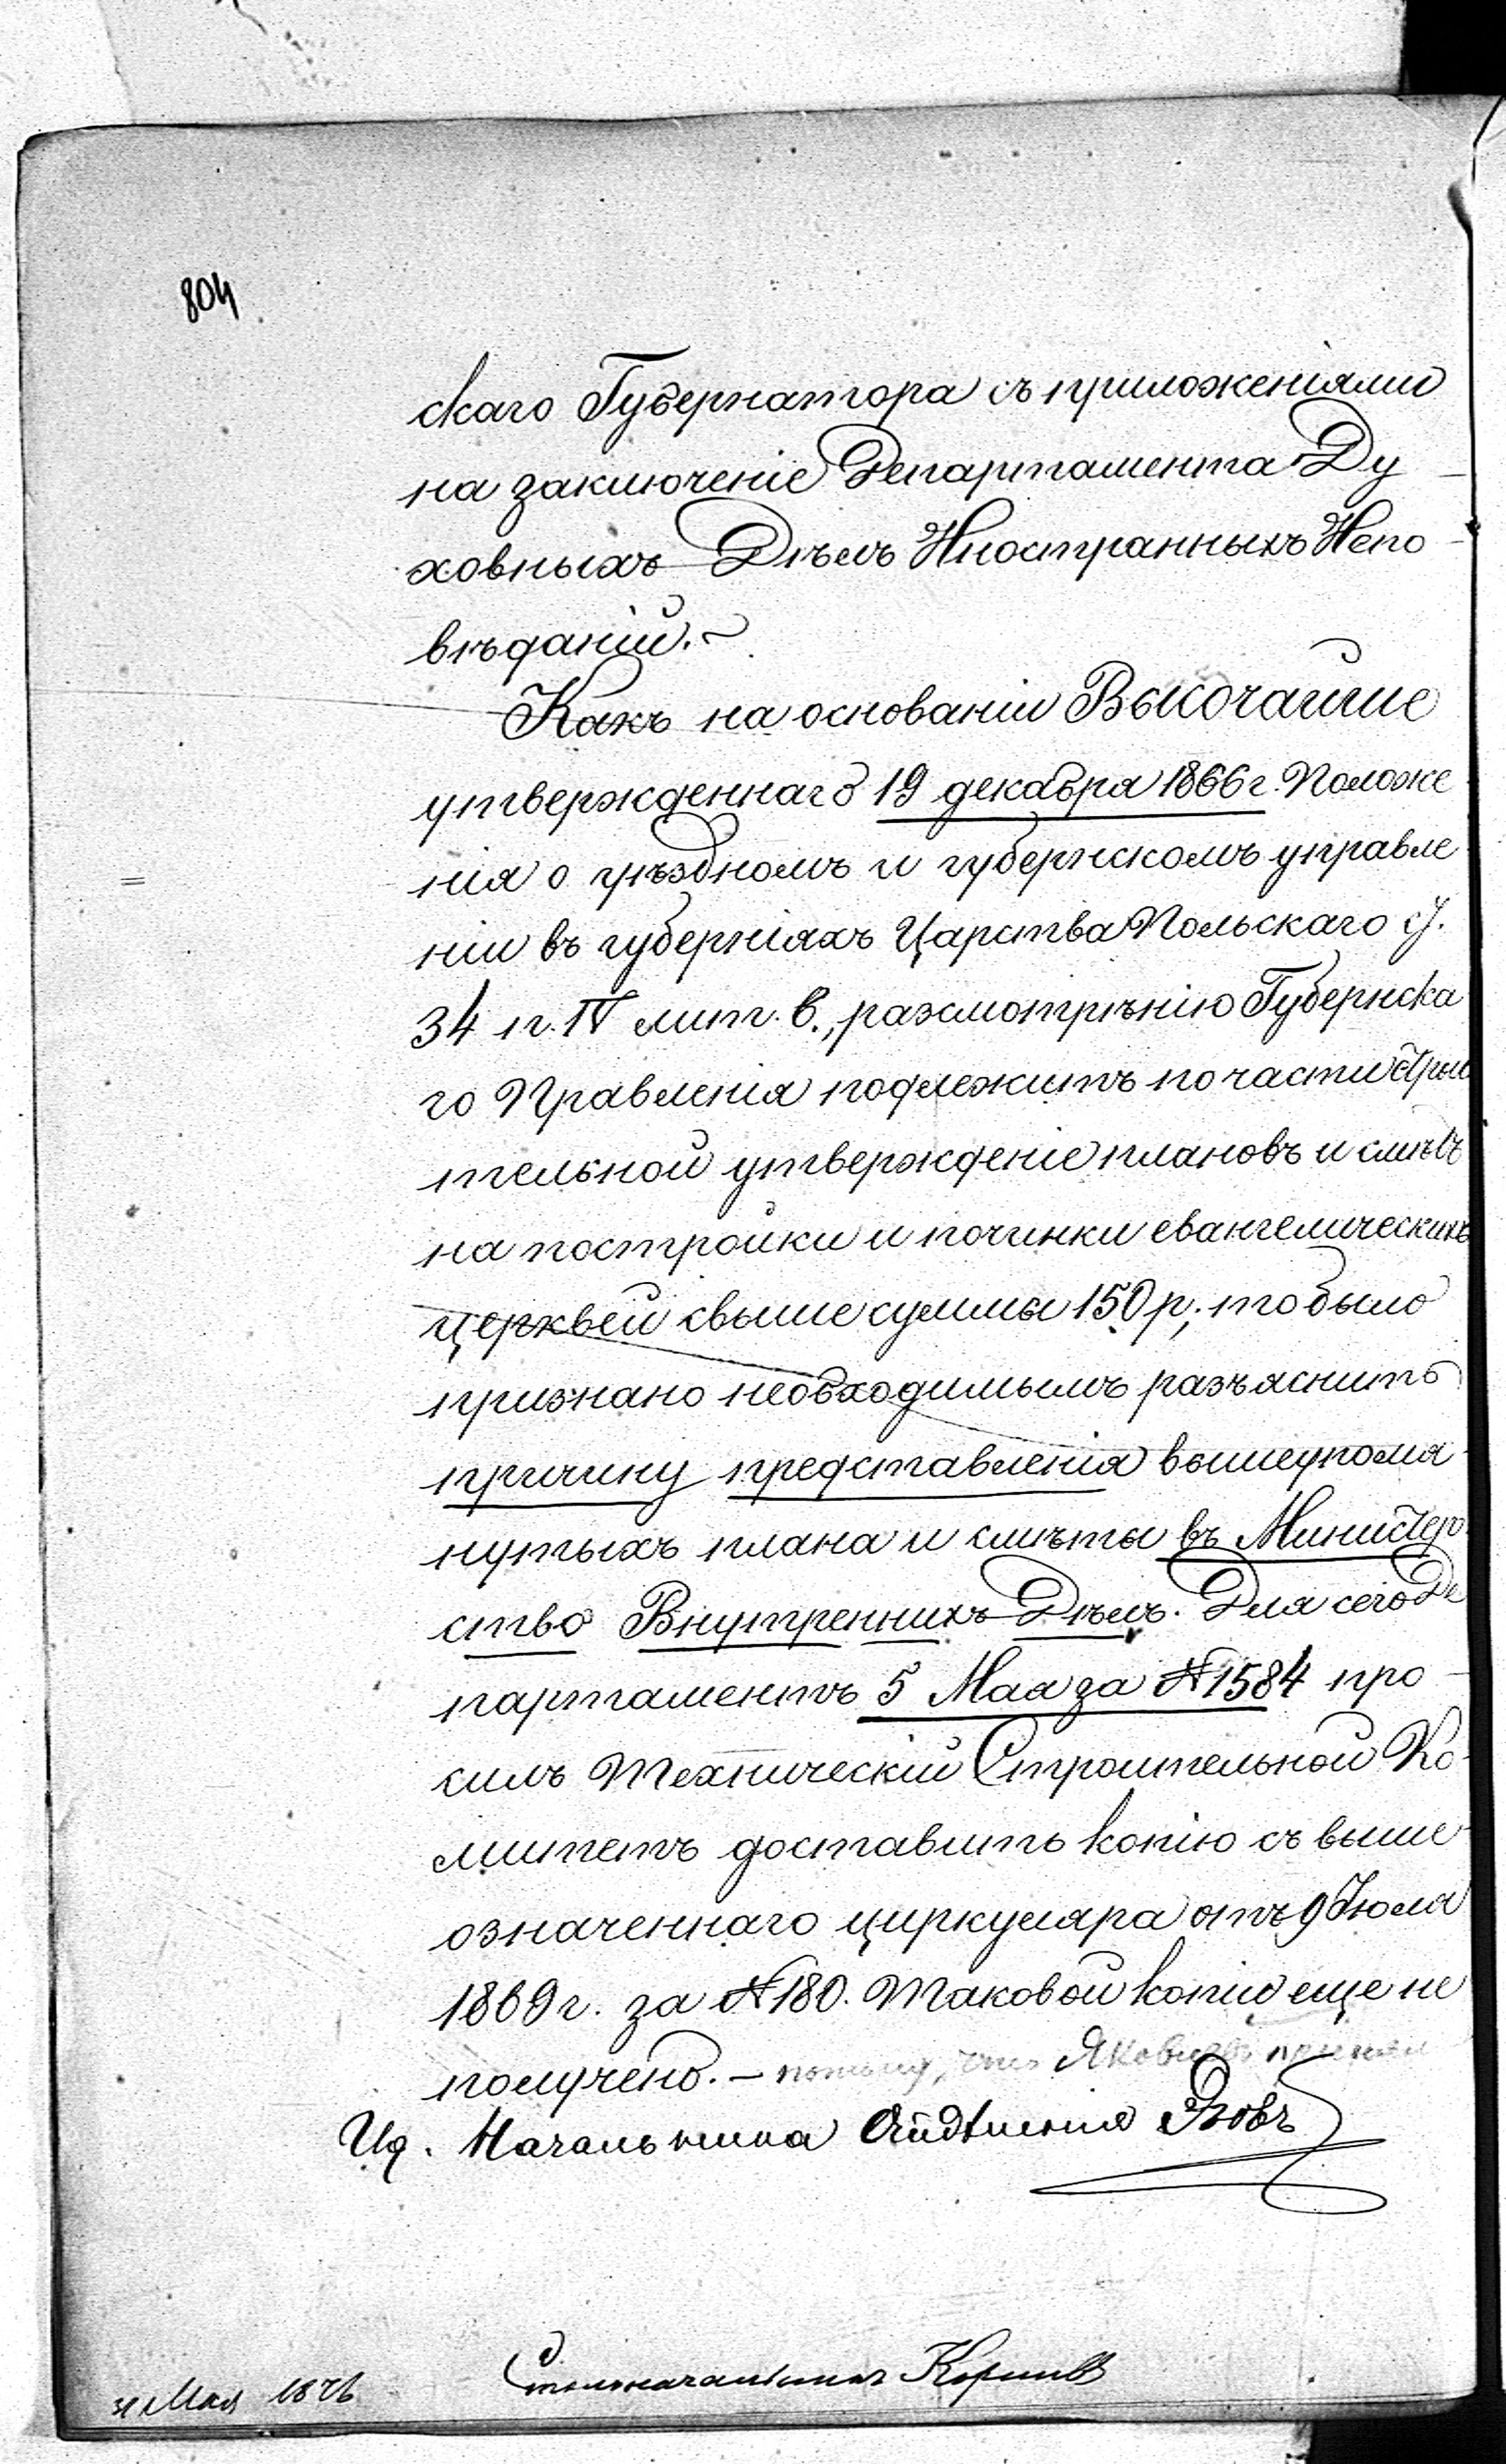 804
скаго Губернатора съ приложеніями
на заключеніе Департамента Ду
ховныхъ Дѣлъ Иностранныхъ Испо
вѣданій.
Какъ на основаніи Высочайше
утвержденнаго 19 декабря 1866 г. Положе
нія о уѣздномъ и губернскомъ управле
ніи въ губерніяхъ Царства Польскаго ст.
34 п. IV лит. в., разсмотрѣнію Губернска
го Правленія подлежитъ по части строи
тельной утвержденіе плановъ и смѣтъ
на постройки и починки евангелическихъ
церквей свыше суммы 150 р., то было
признано необходимымъ разъяснить
причину представленія вышеупомя
нутыхъ плана и смѣты въ Министер
ство Внутреннихъ Дѣлъ. Для сего Де
партаментъ 5 Мая за № 1584 про
силъ Техническій Строительной Ко
митетъ доставить копію съ выше
означеннаго циркуляра отъ 9 Іюля
1869 г. за № 180. Таковой копіи еще не
получено. – потому, что
Ид. Начальника Отдѣленія
Столоначальникъ
Мая 1876